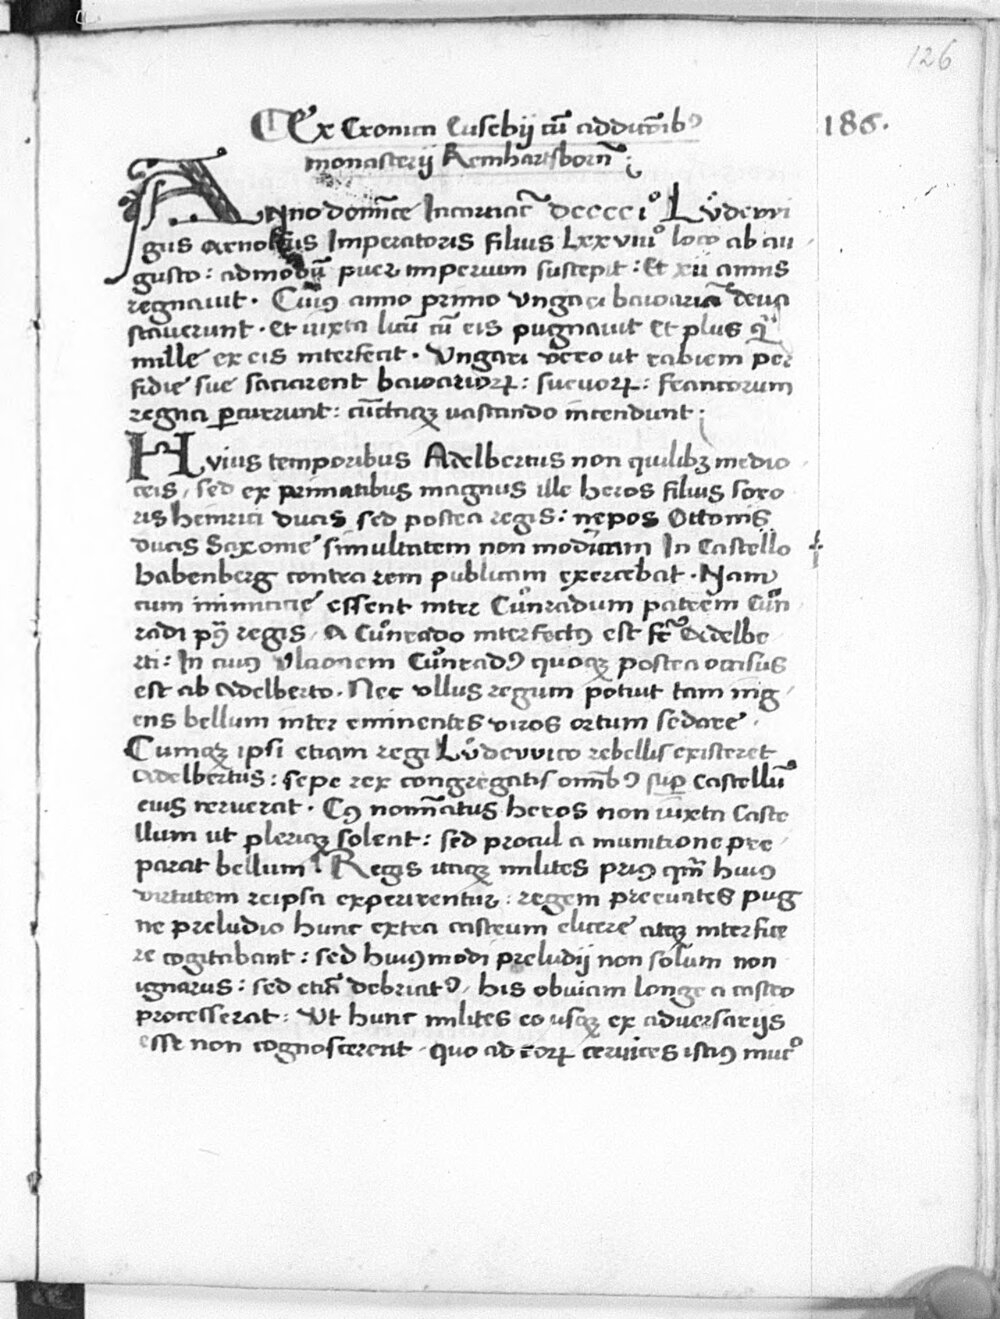 126
Ex Cronica Eusebij cū additōibꝰ
186.
monasterij Reinhartsborn̄
Anno domīce Incarnac̄ dcccciº Lůdewi
gus arnolfus Imperatoris filius Lxxviiiº loco ab au
gusto: admodū puer imperium suscepit: Et xii annis
regnauit. Cuiꝰ anno primo vngari bawariā deua
stauerunt. et iuxta licū cū eis pugnauit et plus qͣ
mille ex eis interfecit. Vngari vero ut rabiem per
fidie sue saciarent bawarioꝝ: sueuoꝝ: francorum
regna ꝑcurrunt: cūctaqꝫ vastando incendunt:
Huius temporibus Adelbertus non quilibꝫ medio
cris, sed ex primatibus magnus ille heros filius soro
ris heinrici ducis sed postea regis: nepos Ottonis
ducis Saxonie simultatem non modicam In Castello
babenberg contra rem publicam exercebat. Nam
cum inimicitie essent inter Cůnradum patrem Cůn
radi pij regis, A Cůnrado interfectꝰ est fr̄ Adelbe
rti: In cuiꝰ vlcionem Cůnradꝰ quoqꝫ postea occisus
est ab Adelberto. Nec vllus regum potuit tam ing
ens bellum inter eminentes viros ortum sedare.
Cumqꝫ ipsi etiam regi Lůdewico rebellis existeret
Adelbertus: sepe rex congregatis om̄ibꝰ suꝑ castellū
eius reruerat. Cꝰ nomīatus heros non iuxta caste
llum ut pleriqꝫ solent: sed procul a munitione pre
parat bellum. Regis itaqꝫ milites priꝰ qm̄ huiꝰ
virtutem reipsa experirentur: regem preeuntes pug
ne preludio hunc extra castrum elicere atqꝫ interfice
re cogitabant: sed huiꝰmodi preludij non solum non
ignarus: sed etiā debriatꝰ, his obuiam longe a castro
processerat: Vt hunc milites eo usqꝫ ex aduersarijs
esse non cognoscerent, quo ad eoꝝ ceruices istiꝰ mucº